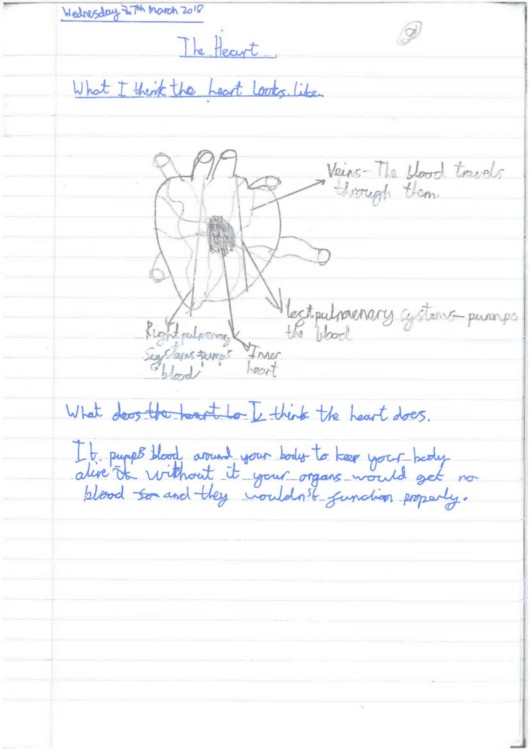 Wednesday 7th March 2018
The Heart
What I think the heart looks like.
Veins - The blood travels
through them.
leftpulmaenary systems - pumps
the blood
Right pulmenary
systems pumps
blood
Inner
heart
What deos the heart to I think the heart does.
It pumps blood around your body to keep your body
alive without it your organs would get no
blood and they wouldn't function properly.